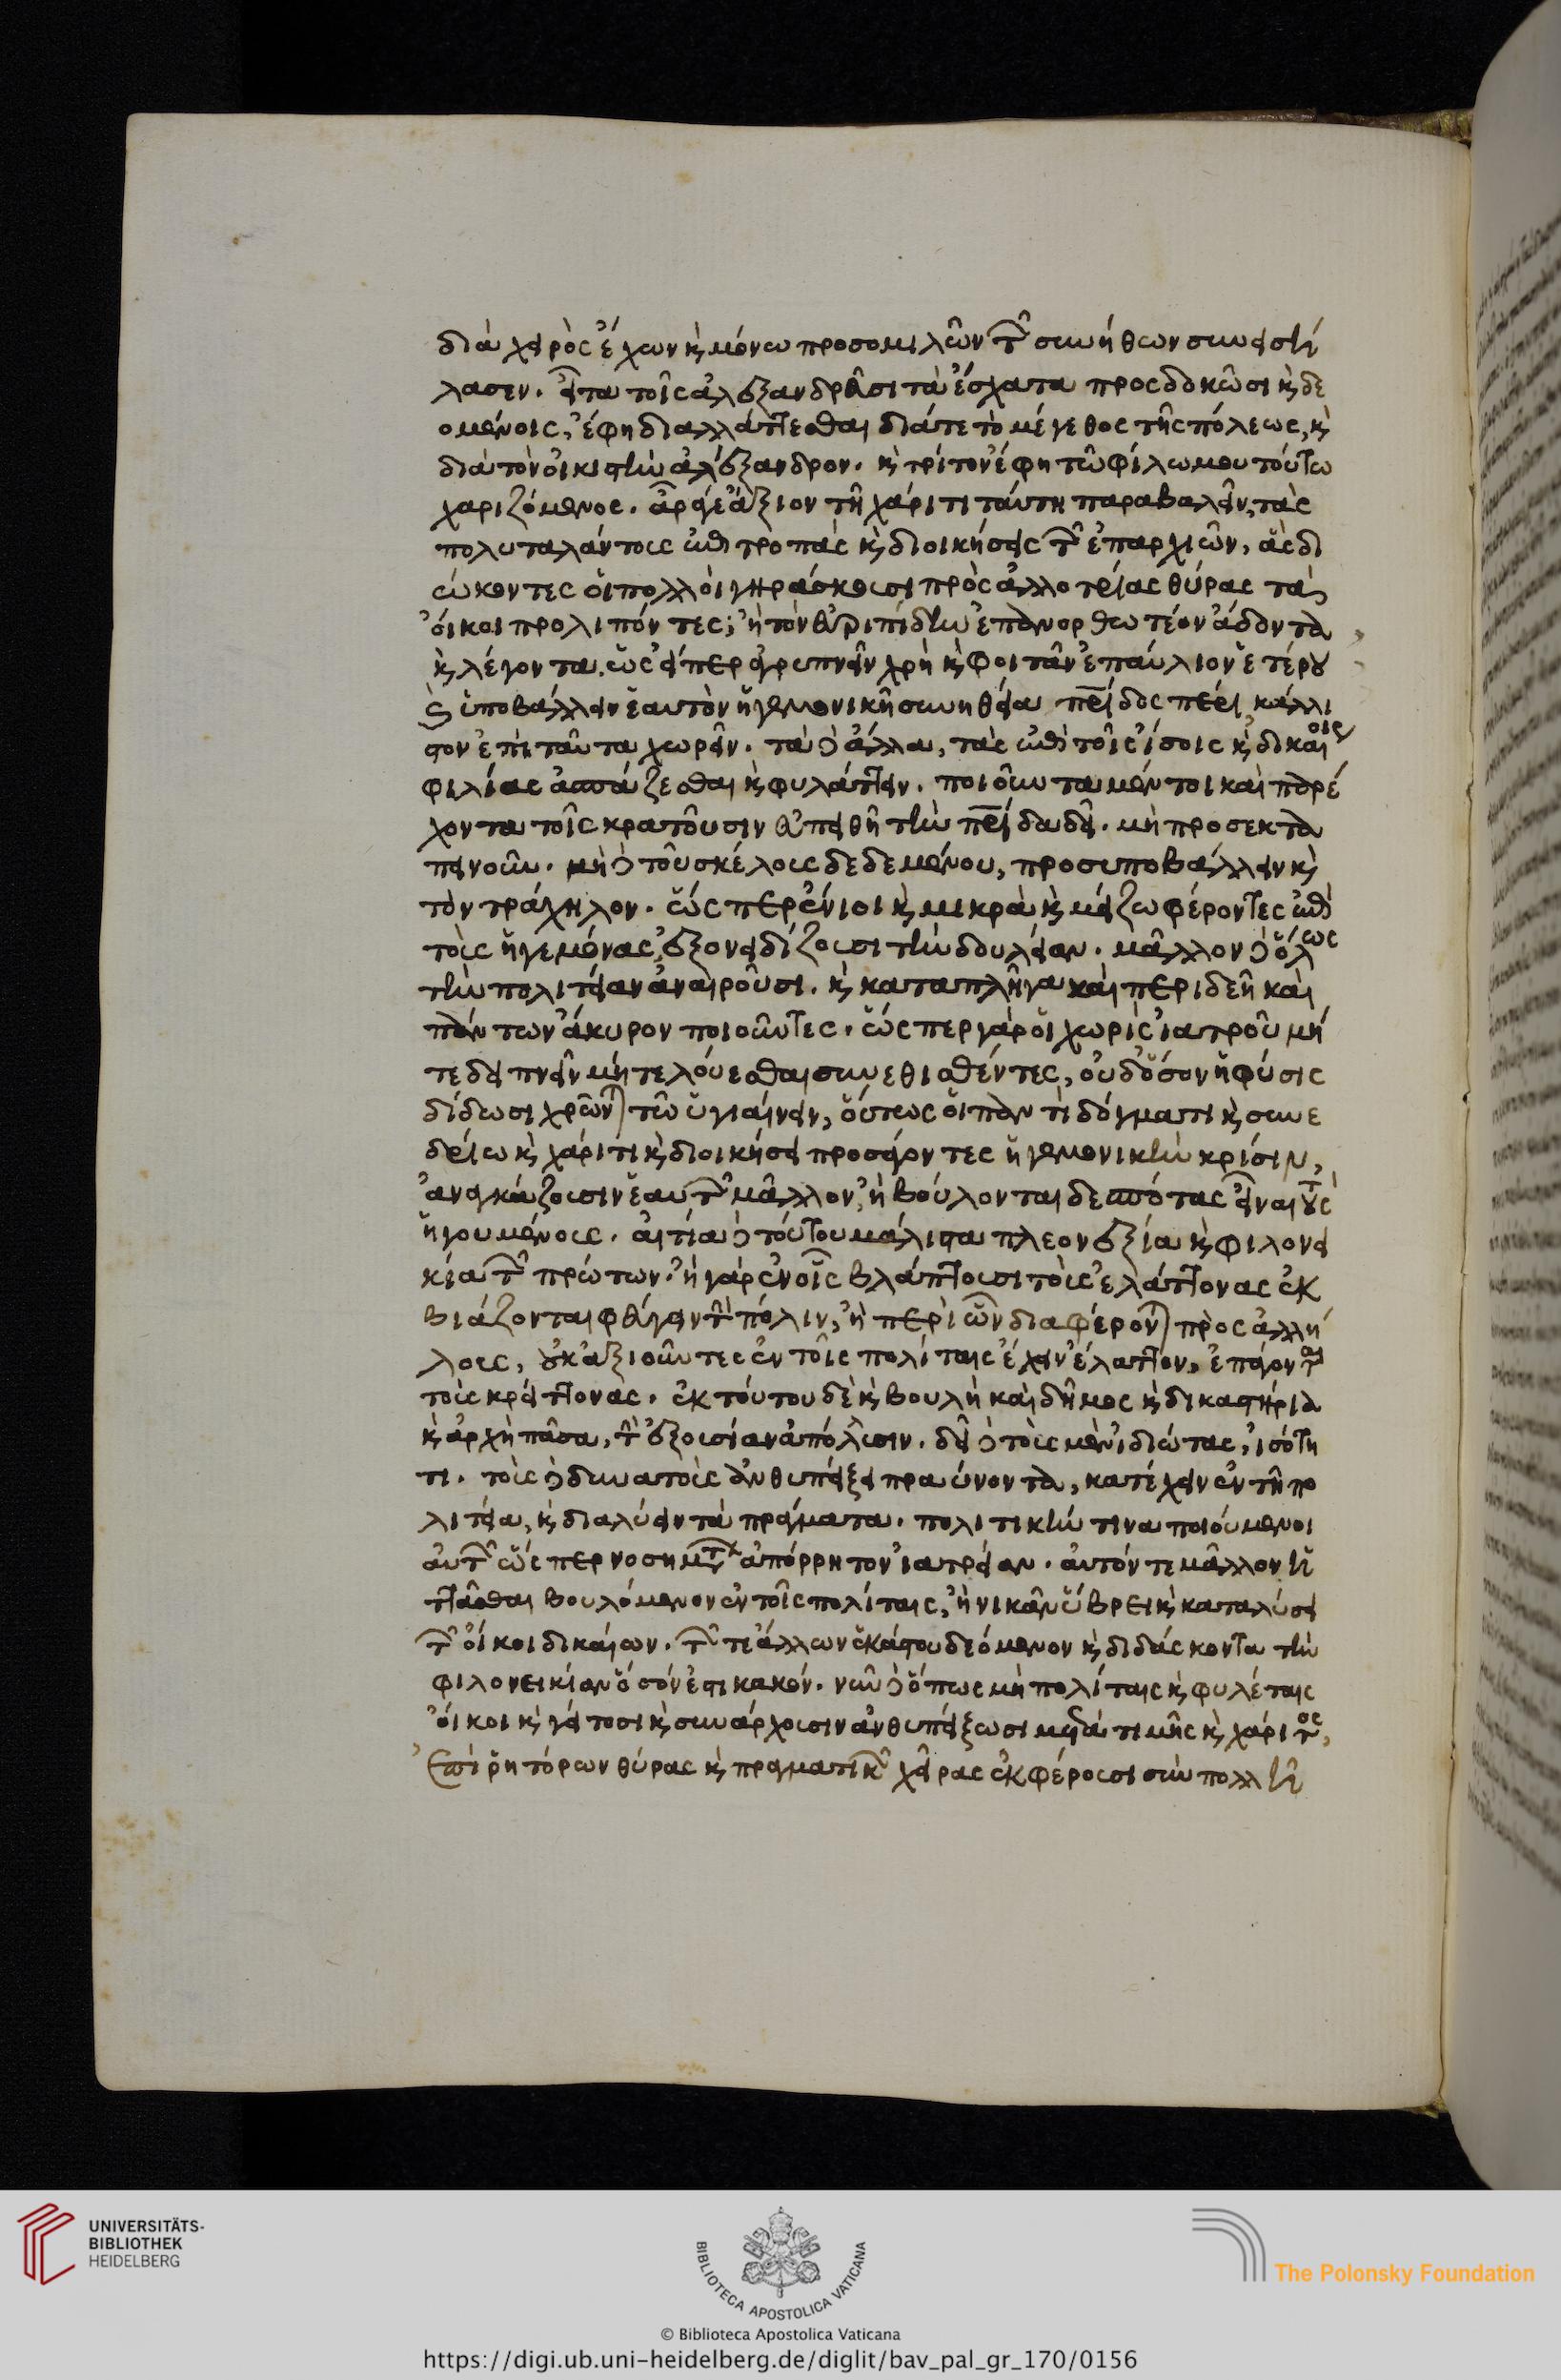 διὰ χειρὸς ἔχων κ̀ μόνω προσομιλῶν τῶν συνήθων συνεισή
λασεν. εἶτα τοῖς ἀλεξανδρεῦσι τὰ ἔσχατα προσδοκῶσι κ̀ δε
ομένοις, ἔφη διαλλάττεσθαι διά τε τὸ μέγεθος τῆς πόλεως, κ̀
διὰ τὸν οἰκιστὴν ἀλέξανδρον. κ̀ τρίτον ἔφη τῶ φίλω μου τούτω
χαριζόμενος. ἆρά γε ἄξιον τῆ χάριτι ταύτη παραβαλεῖν, τὰς
πολυταλάντους ἐπιτροπὰς κ̀ διοικήσεις τῶν ἐπαρχιῶν, ἃς δι
ώκοντες οἱ πολλοὶ γηράσκουσι πρὸς ἀλλοτρίας θύρας τὰ
οἴκοι προλιπόντες; ἢ τὸν εὐριπίδην ἐπανορθωτέον ἄδοντα
κ̀ λέγοντα. ὡς εἴπερ ἀγρυπνεῖν χρὴ κ̀ φοιτᾶν ἐπαύλιον ἑτέρου
κ̀ ὑποβάλλειν ἑαυτὸν ἡγεμονικῆ συνηθεία πρίδος πέρι κάλλι
στον ἐπὶ ταῦτα χωρεῖν. τὰ δὲ ἄλλα, τὰς ἐπὶ τοῖς ἴσοις κ̀ δικαίοις
φιλίας ἀσπάζεσθαι κ̀ φυλάττειν. ποιοῦντα μέντοι καὶ παρέ
χοντα τοῖς κρατοῦσιν εὐπειθῆ τὴν πρίδα δεῖ. μὴ προσεκτα
πεινοῦν. μὴ δὲ τοῦ σκέλους δεδεμένου, προσυποβάλλειν κ̀
τὸν τράχηλον. ὥσπερ ἔνιοι κ̀ μικρὰ κ̀ μείζω φέροντες ἐπὶ
τοὺς ἡγεμόνας, ἐξονειδίζουσι τὴν δουλείαν. μᾶλλον δὲ ὅλως
τὴν πολιτείαν ἀναιροῦσι. κ̀ καταπλῆγα καὶ περιδεῆ καὶ
πάντων ἄκυρον ποιοῦντες. ὥσπερ γὰρ οἱ χωρὶς ἰατροῦ μή
τε δειπνεῖν μήτε λούεσθαι συνεθισθέντες, οὐδ' ὅσον ἡ φύσις
δίδωσι χρῶνται τῶ ὑγιαίνειν, οὕτως οἱ παντὶ δόγματι κ̀ συνε
δρίω κ̀ χάριτι κ̀ διοικήσει προσάγοντες ἡγεμονικὴν κρίσιν,
ἀναγκάζουσιν ἑαυτῶν μᾶλλον, ἢ βούλονται δεσπότας εἶναι τοὺς
ἡγουμένους. αἰτία δὲ τούτου μάλιστα πλεονεξία κ̀ φιλονει
κία τῶν πρώτων. ἢ γὰρ ἐν οἷς βλάπτουσι τοὺς ἐλάττονας ἐκ
βιάζονται φεύγειν τὴν πόλιν, ἢ περὶ ὧν διαφέρονται πρὸς ἀλλή
λους, οὐκ ἀξιοῦντες ἐν τοῖς πολίταις ἔχειν ἔλαττον, ἐπάγονται
τοὺς κρείττονας. ἐκ τούτου δὲ κ̀ βουλὴ καὶ δῆμος κ̀ δικαστήρια
κ̀ ἀρχὴ πᾶσα, τὴν ἐξουσίαν ἀπόλλυσιν. δεῖ δὲ τοὺς μὲν ἰδιώτας, ἰσότη
τι. τοὺς δὲ δυνατοὺς ἀνθυπείξει πραύνοντα, κατέχειν ἐν τῆ πο
λιτεία, κ̀ διαλύειν τὰ πράγματα. πολιτικήν τινα ποιούμενοι
αὐτῶν ὥσπερ νοσημάτων ἀπόρρητον ἰατρείαν. αὐτόν τε μᾶλλον ἡτ
τᾶσθαι βουλόμενον ἐν τοῖς πολίταις, ἢ νικᾶν ὕβρει κ̀ καταλύσει
τῶν οἴκοι δικαίων. τῶν τε ἄλλων ἑκάστου δεόμενον κ̀ διδάσκοντα τὴν
φιλονεικίαν ὅσόν ἐστι κακόν. νῦν δὲ ὅπως μὴ πολίταις κ̀ φυλέταις
οἴκοι κ̀ γείτοσι κ̀ συνάρχουσιν ἀνθυπείξωσι μετὰ τιμῆς κ̀ χάριτος,
ἐπὶ ῥητόρων θύρας κ̀ πραγματικῶν χεῖρας ἐκφέρουσι σὺν πολλῆ
UNIVERSITÄTS-
BIBLIOTHEK
HEIDELBERG
BIBLIOTECA APOSTOLICA VATICANA
The Polonsky Foundation
© Biblioteca Apostolica Vaticana
https://digi.ub.uni-heidelberg.de/diglit/bav_pal_gr_170/0156